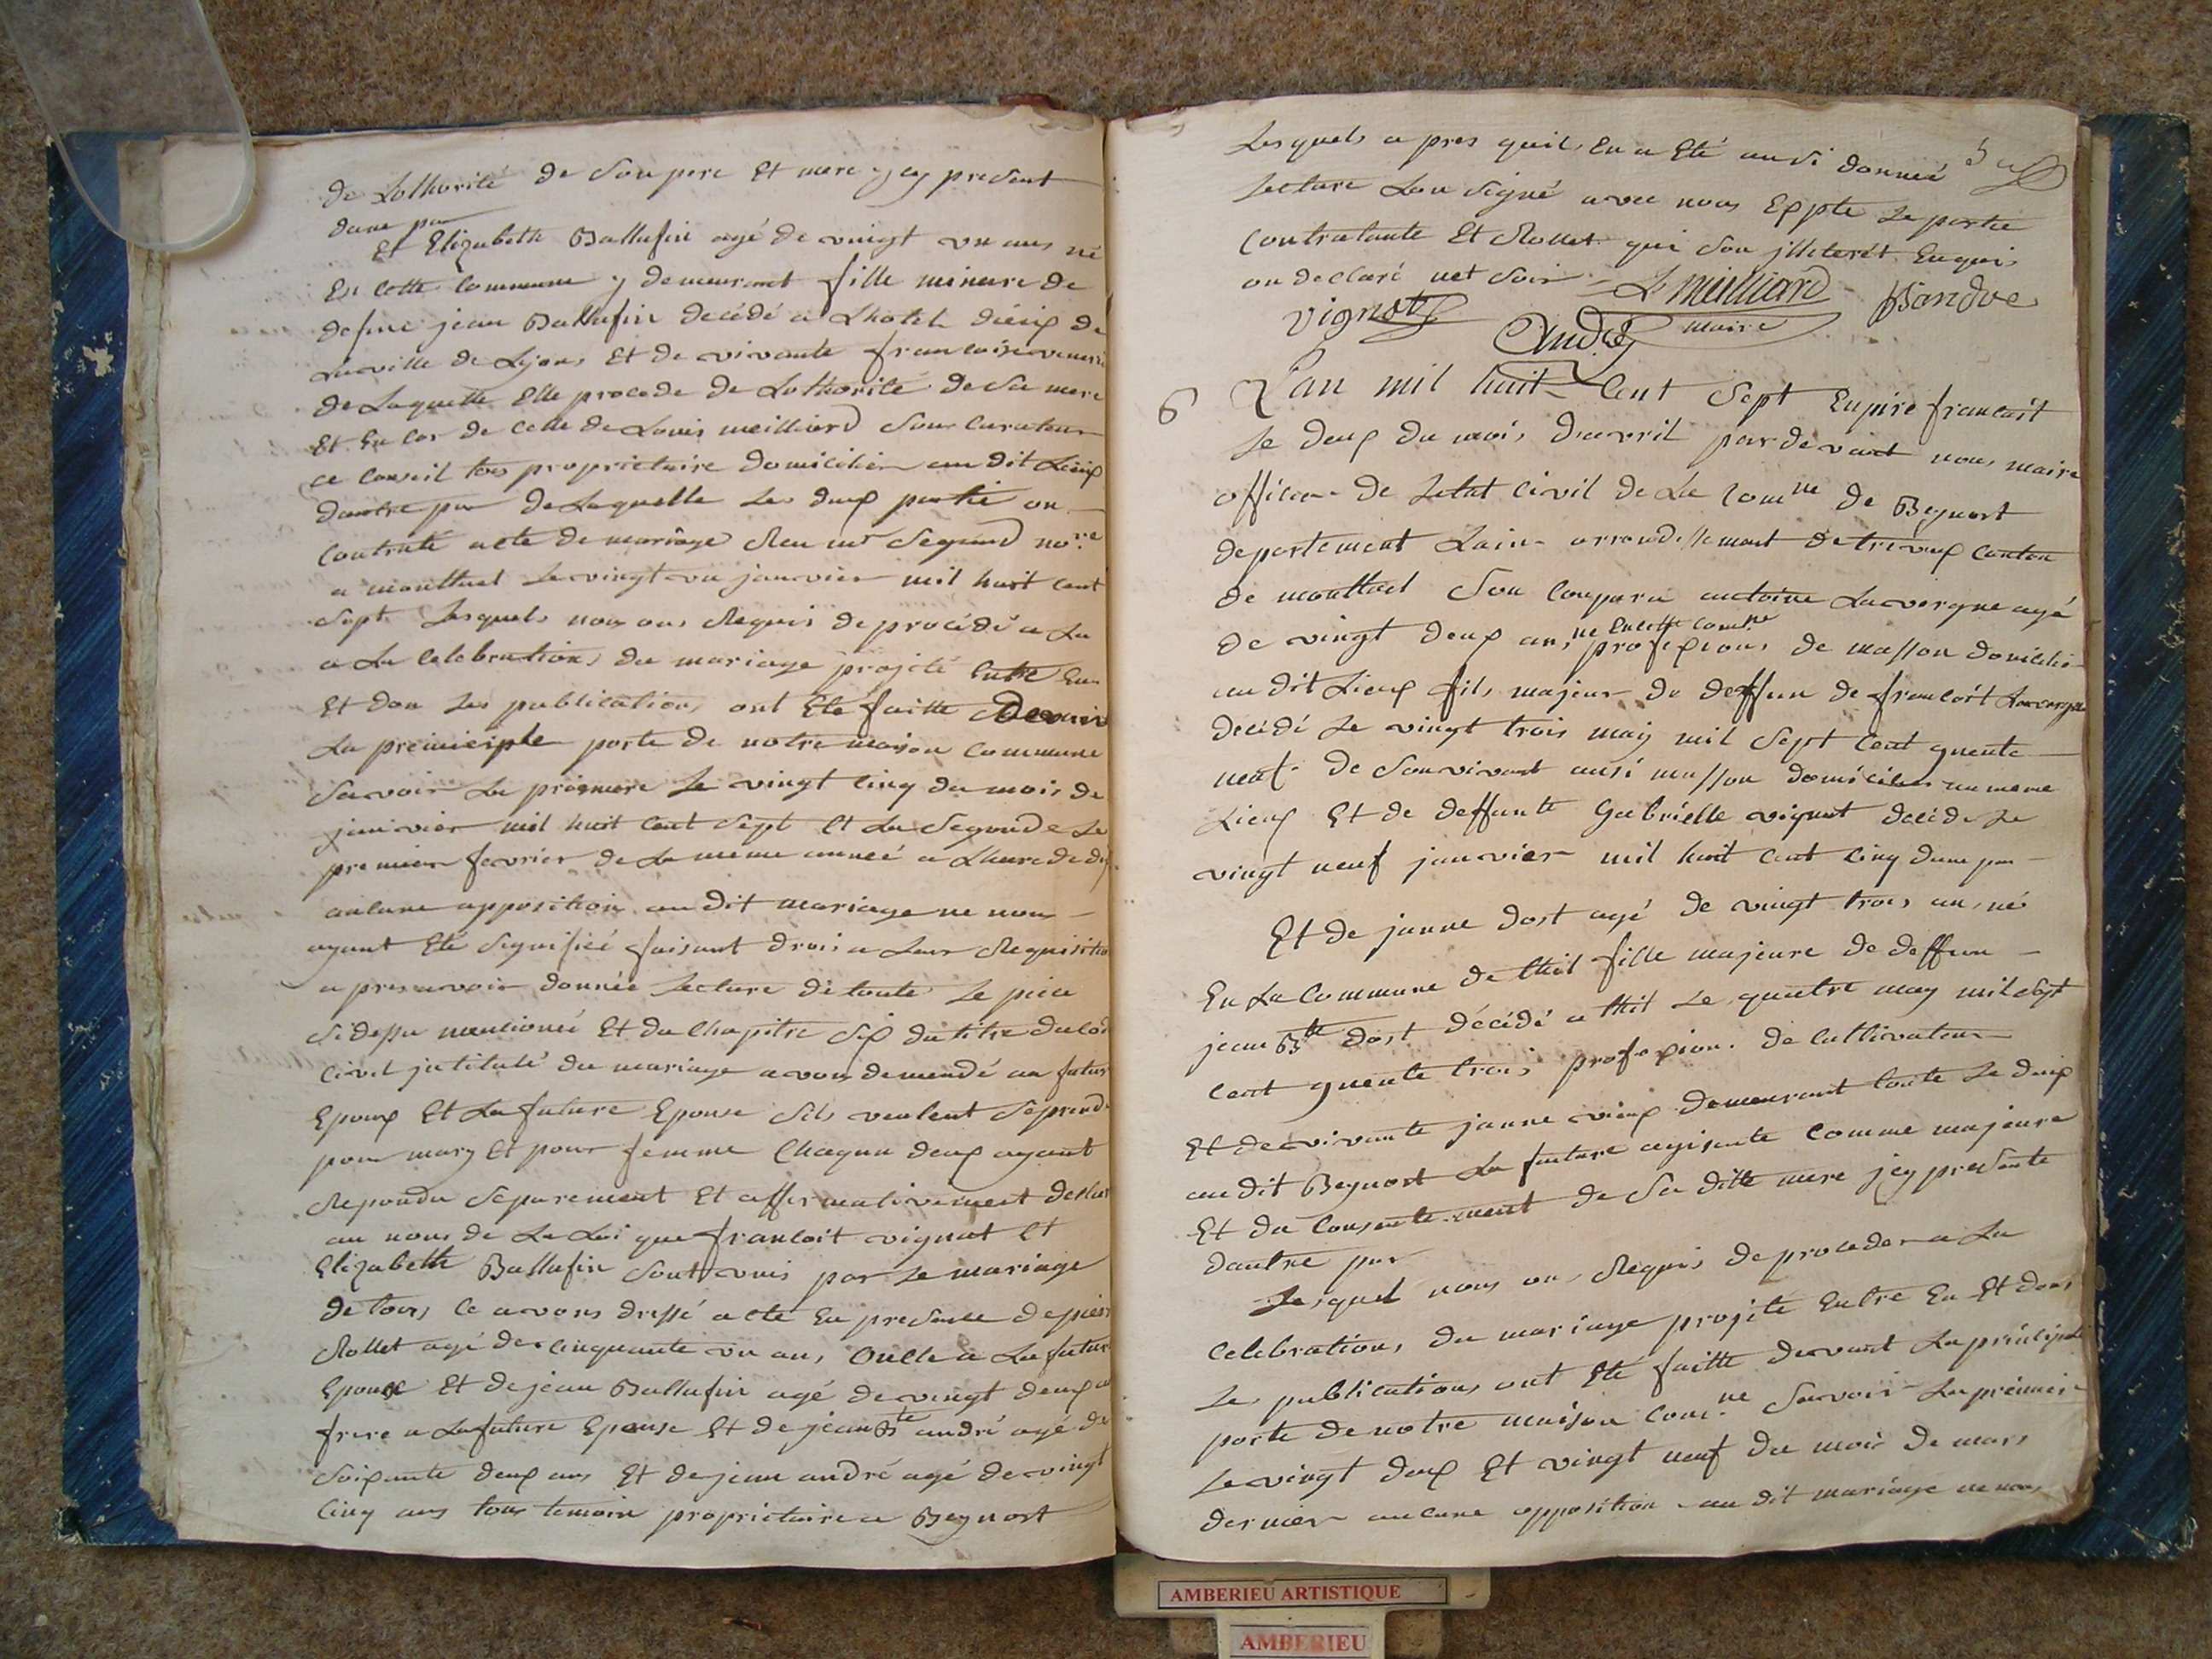 de Lothorité de Son pere Et mere jcy present
dune par
Et Elizabeth Ballufin agé de vingt un ans né
En cette Commune y demeurant fille mineure de
defunc jean Ballufin decédé a Lhotel dieux de
La ville de Lyon, Et de vivante francoise
de Laquelle Elle procede de Lothorité de Sa mere
Et En cor de celle de Louis meilliard Son curateur
ce conseil tous proprietaire domicilier au dit Lieux
dautre par de Laquelle Les deux partie on
contraté acte de mariage Reu mr Segaud nore
a montluel Le vingt un janvier mil huit cent
Sept Lesquels nous ons Requis de procédé a La
a La Celebration, du mariage projeté Entre Eux
Et don Les publication, ont Eté faitte devant
La premiciple porte de notre maison Commune
Savoir La premiere Le vingt Cinq du mois de
janvier mil huit Cent Sept Et La Segonde Le
premier fevrier de La meme anneé a Lheure de dix
aucune opposition au dit mariage ne nous
ayant Eté Signifieé faisant droi a Leur Requisitio
a pres avoir donnée Lecture de toute Le piece
Si dessu mentioneé Et du Chapitre Six du titre du Cod
Civil jntitulé du mariage avons demendé au futur
Epoux Et La future Epouse Sils veulent Se prendr
pour mary Et pour femme Chaqun deux ayant
Repondu Separement Et affirmativement declar
au nom de La Loi que francoit vignat Et
Elizabeth Ballufin Sont unis par Le mariage
de tous, Ce avons dressé acte En presence de pier
Rollet agé de Cinquante un an, Oncle a La futur
Epouse Et de jean Ballufin agé de vingt deux an
frere a La future Epouse Et de jean Bte andré agé de
Soixante deux ans Et de jean andré agé de vingt
Cinq ans tous temoin proprietaire a Beynost
Lesquels a pres quil En a Eté ausi donneé
Lecture Lon Signé avec nous Expté Le partie
Contratante Et Rollet qui Son jlliterét Enquis
on declaré net Savoir L. Meilliard Bandre
Vignat André maire
6 Lan mil huit Cent Sept Enpire francait
Le deux du mois davril par devant nous maire
officer de Letat Civil de La Comne de Beynost
departement Lain arrondissemant de trevoux Canton
de montluel Son Conparu antoine Lavergne agé
ne En cette Comne
de vingt deux an, profexions de masson domicilié
au dit Lieux fils majeur de deffun de francoit Lavergne
decédé Le vingt trois may mil Sept Cent quente
neuf de Son vivant ausi masson domicilier au meme
Lieux Et de deffunte Gabrielle vignat decéde Le
vingt neuf janvier mil huit Cent Cinq dune par
Et de janne dost agé de vingt trois an, né
En La Commune de thil fille majeure de deffun
jean Bte dost décédé a thil Le quatre may mil Sept
Cent quente trois profexion de Cultivateur
Et de vivante janne vieux demeurant toute Le deux
au dit Beynost La future agisante Comme majeure
Et du Consentement de Sa ditte mere jcy presente
dautre par
Lesquel nous on, Requis de proceder a La
Celebration, du mariage projeté Entre Eu Et dont
Le, publication, ont Eté faitte devant La principale
porte de notre maison Comne Savoir La premier
Le vingt deux Et vingt neuf du mois de mars
dernier aucune opposition au dit mariage ne nous
AMBERIEU ARTISTIQUE
AMBERIEU